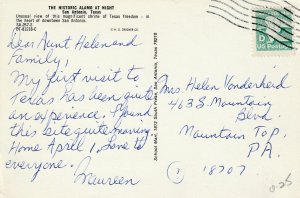 THE HISTORIC ALAMO AT NIGHT
San Antonio, Texas
Unusual view of this magnificent shrine of Texas Freedom - in
the heart of downtown San Antonio.
Dear Aunt Helen and
Family,
My first visit to
Texas has been quite
an experience. Found
this site quite moving.
Home April 1, Love to
everyone.
Maureen
Mrs. Helen Vonderheid
463 S. Mountain
Blvd.
Mountain Top,
PA.
18707
D
US Postage
0.25